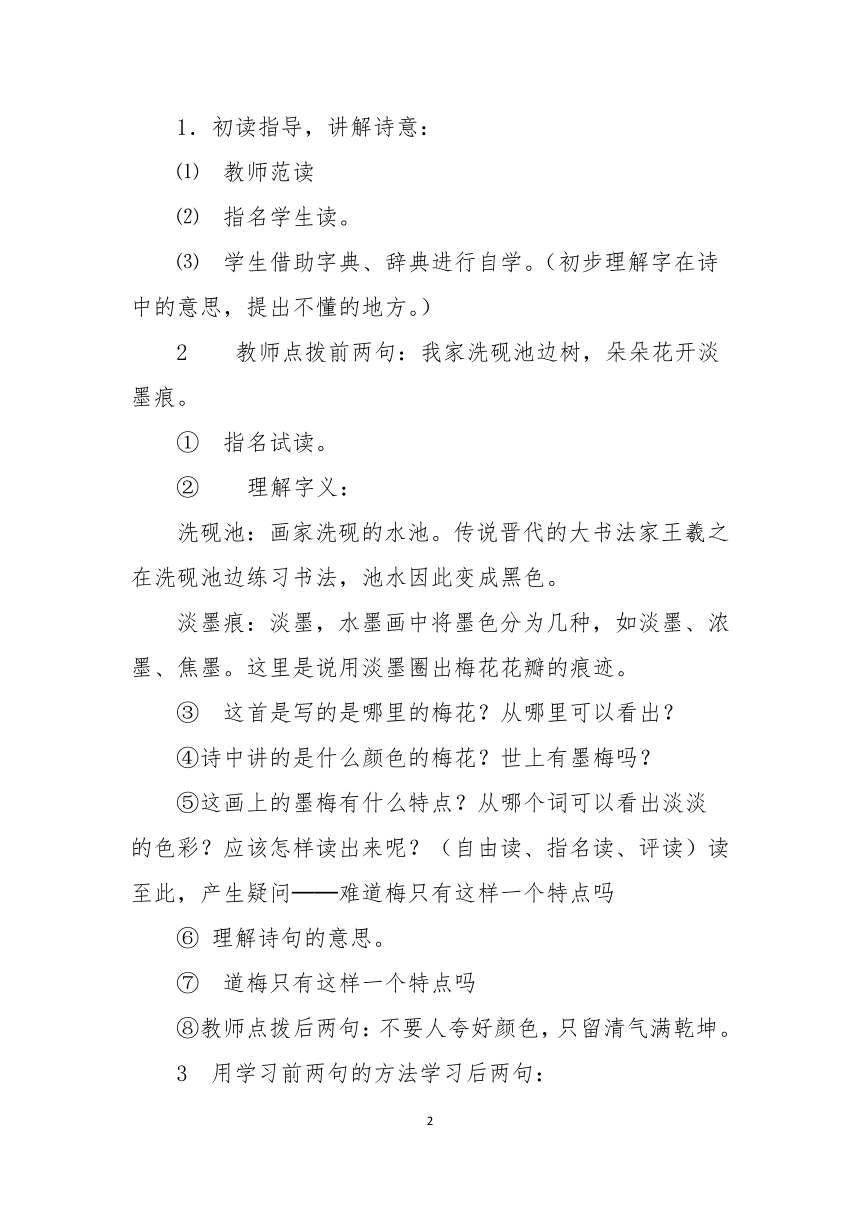 1．初读指导，讲解诗意：
⑴　教师范读
⑵　指名学生读。
⑶　学生借助字典、辞典进行自学。（初步理解字在诗
中的意思，提出不懂的地方。）
2　　教师点拨前两句：我家洗砚池边树，朵朵花开淡
墨痕。
①　指名试读。
②　　理解字义：
洗砚池：画家洗砚的水池。传说晋代的大书法家王羲之
在洗砚池边练习书法，池水因此变成黑色。
淡墨痕：淡墨，水墨画中将墨色分为几种，如淡墨、浓
墨、焦墨。这里是说用淡墨圈出梅花花瓣的痕迹。
③　这首是写的是哪里的梅花？从哪里可以看出？
④诗中讲的是什么颜色的梅花？世上有墨梅吗？
⑤这画上的墨梅有什么特点？从哪个词可以看出淡淡
的色彩？应该怎样读出来呢？（自由读、指名读、评读）读
至此，产生疑问——难道梅只有这样一个特点吗
⑥ 理解诗句的意思。
⑦　道梅只有这样一个特点吗
⑧教师点拨后两句：不要人夸好颜色，只留清气满乾坤。
3　用学习前两句的方法学习后两句：
2